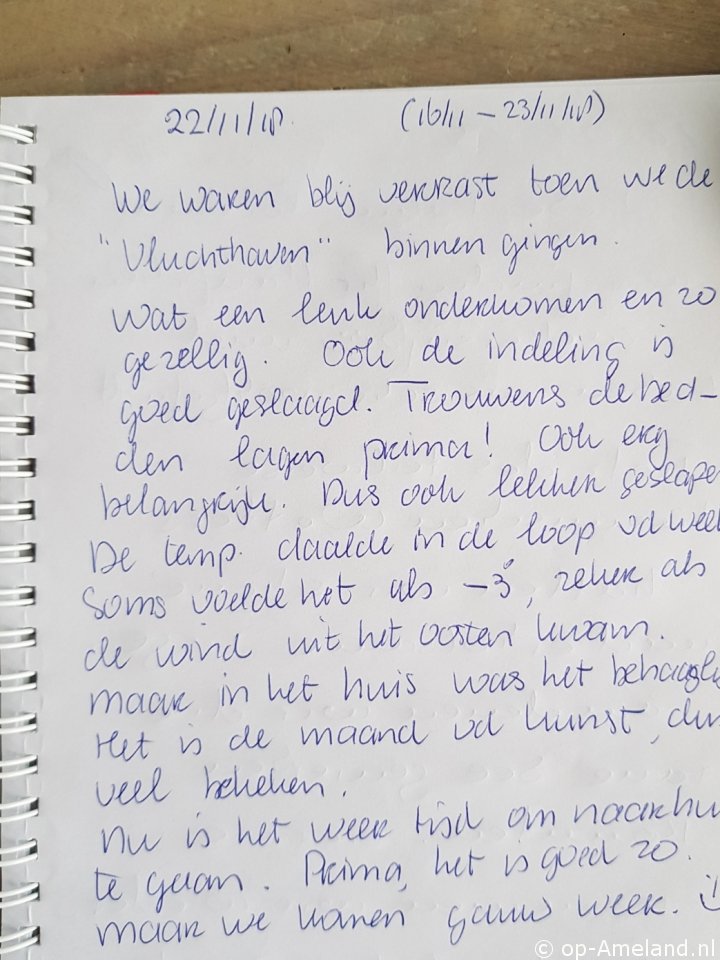 22/11/18 (16/11 – 23/11/18)
We waren blij verrast toen we de
"Vluchthaven" binnen gingen.
Wat een leuk onderkomen en zo
gezellig. Ook de indeling is
goed geslaagd. Trouwens de bed-
den lagen prima! Ook erg
belangrijk. Dus ook lekker geslapen
De temp. daalde in de loop vd week
Soms voelde het als -3°, zeker als
de wind uit het oosten kwam.
maar in het huis was het behaagli
Het is de maand vd kunst, dus
veel bekeken.
Nu is het weer tijd om naar hu
te gaan. Prima, het is goed zo.
maar we komen gauw weer. :)
© op-Ameland.nl